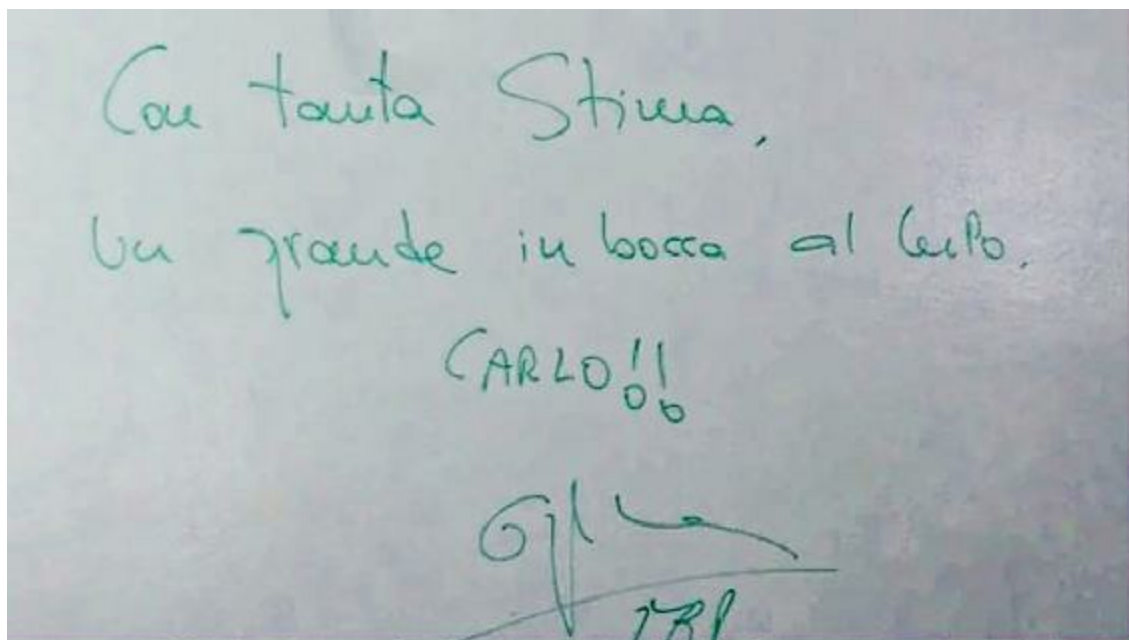 Con tanta Stima,
Un grande in bocca al lupo.
CARLO!!